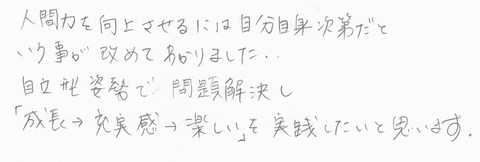 人間力を向上させるには自分自身次第だと
いう事が改めてわかりました..
自立形姿勢で問題解決し
「成長→充実感→楽しい」を実践したいと思います.